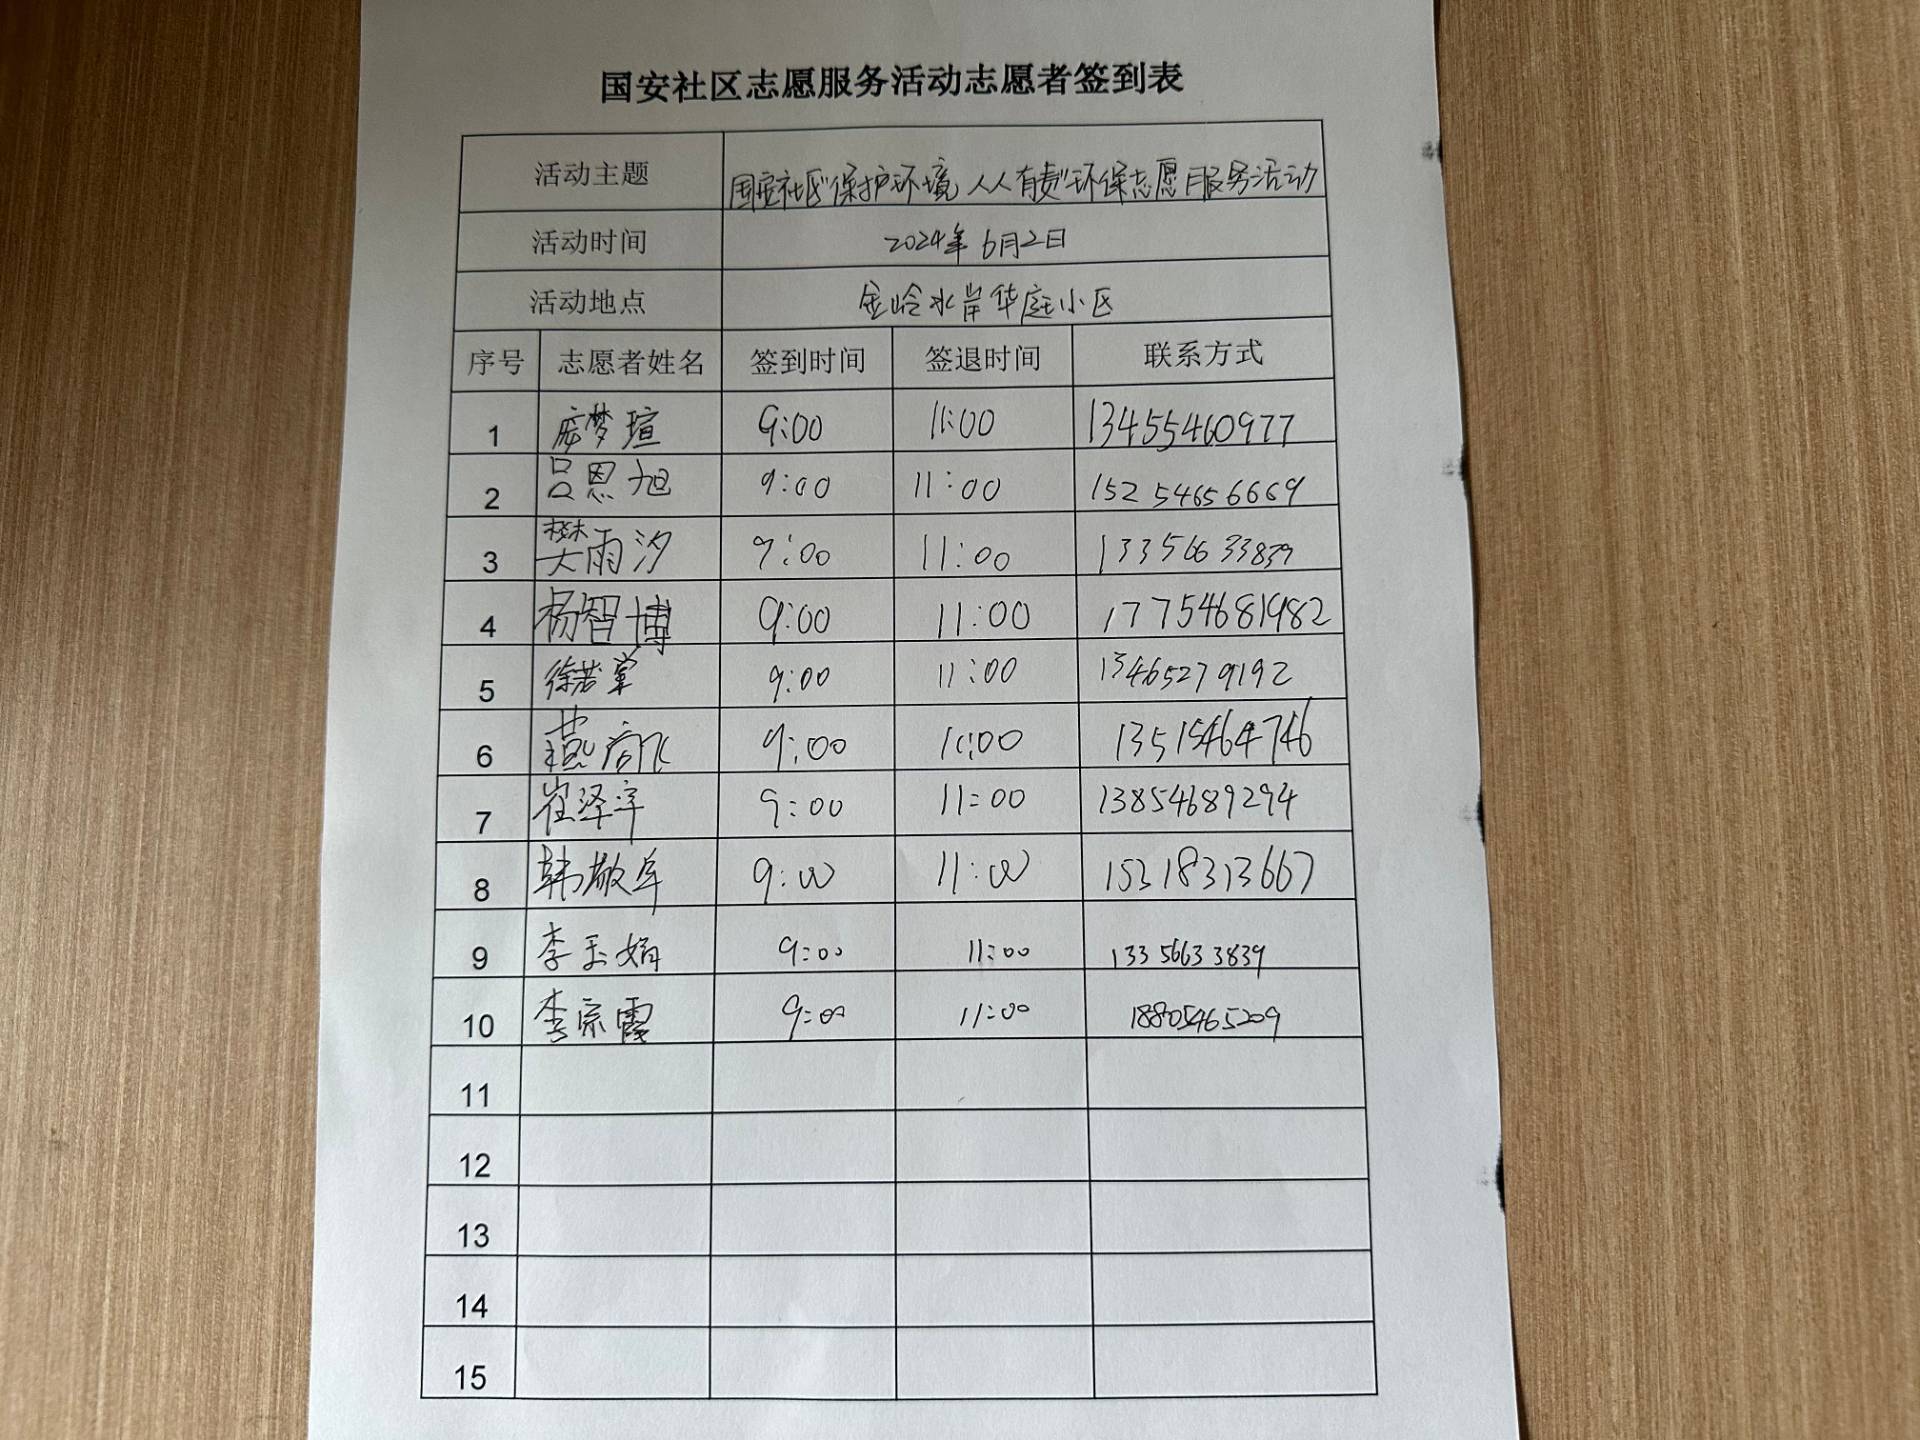 国安社区志愿服务活动志愿者签到表
活动主题 国安社区"保护环境 人人有责"环保志愿服务活动
活动时间 2024年6月2日
活动地点 金岭水岸华庭小区
序号 志愿者姓名 签到时间 签退时间 联系方式
1 庞梦瑄 9:00 11:00 13455460977
2 吕恩旭 9:00 11:00 15254656669
3 樊雨汐 9:00 11:00 13356633839
4 杨智博 9:00 11:00 17754681982
5 徐若 9:00 11:00 13465279192
6 燕 飞 9:00 11:00 13515464746
7 崔泽宇 9:00 11:00 13854689294
8 韩敬 9:00 11:00 15318313667
9 李玉娟 9:00 11:00 13356633839
10 李宗霞 9:00 11:00 18805465209
11
12
13
14
15